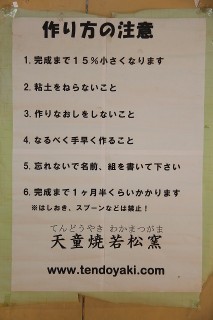 作り方の注意
1. 完成まで15%小さくなります
2. 粘土をねらないこと
3. 作りなおしをしないこと
4. なるべく手早く作ること
5. 忘れないで名前、組を書いて下さい
6. 完成まで1ヶ月半くらいかかります
※はしおき、スプーンなどは禁止！
てんどうやき わかまつがま
天童焼若松窯
www.tendoyaki.com